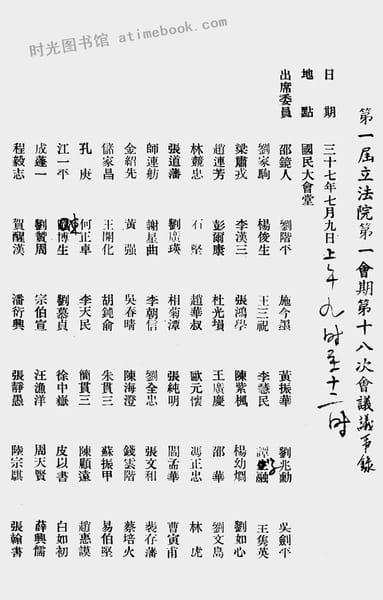 时光图书馆 atimebook.com
第一屆立法院第一會期第十八次會議議事錄
日期 三十七年七月九日上午九时至十二时
地點 國民大會堂
出席委員 邵鏡人 劉階平 施今墨 黃振華 劉兆勳 吳劍平
劉家駒 楊俊生 王三祝 李慧民 譚融 王雋英
梁肅戎 李漢三 張鴻學 陳紫楓 楊幼炯 劉如心
趙連芳 彭爾康 杜光塤 王廣慶 邵華 劉文島
林競忠 石堅 趙華叔 歐元懷 馮正忠 林虎
張道藩 劉廣瑛 相菊潭 張純明 閻孟華 曹寅甫
師連舫 謝星曲 李朝信 劉全忠 張文和 裴存藩
金紹先 黃強 吳春晴 陳海澄 錢雲階 蔡培火
儲家昌 王開化 胡鈍俞 朱貫三 蘇振甲 易伯堅
孔庚 何正卓 李天民 簡貫三 陳顧遠 趙惠謨
江一平 博生 劉慕貞 徐中嶽 皮以書 白如初
成蓬一 劉贊周 宗伯宣 汪漁洋 周天賢 薛興儒
程毅志 賀醒漢 潘衍興 張靜愚 陸宗騏 張翰書